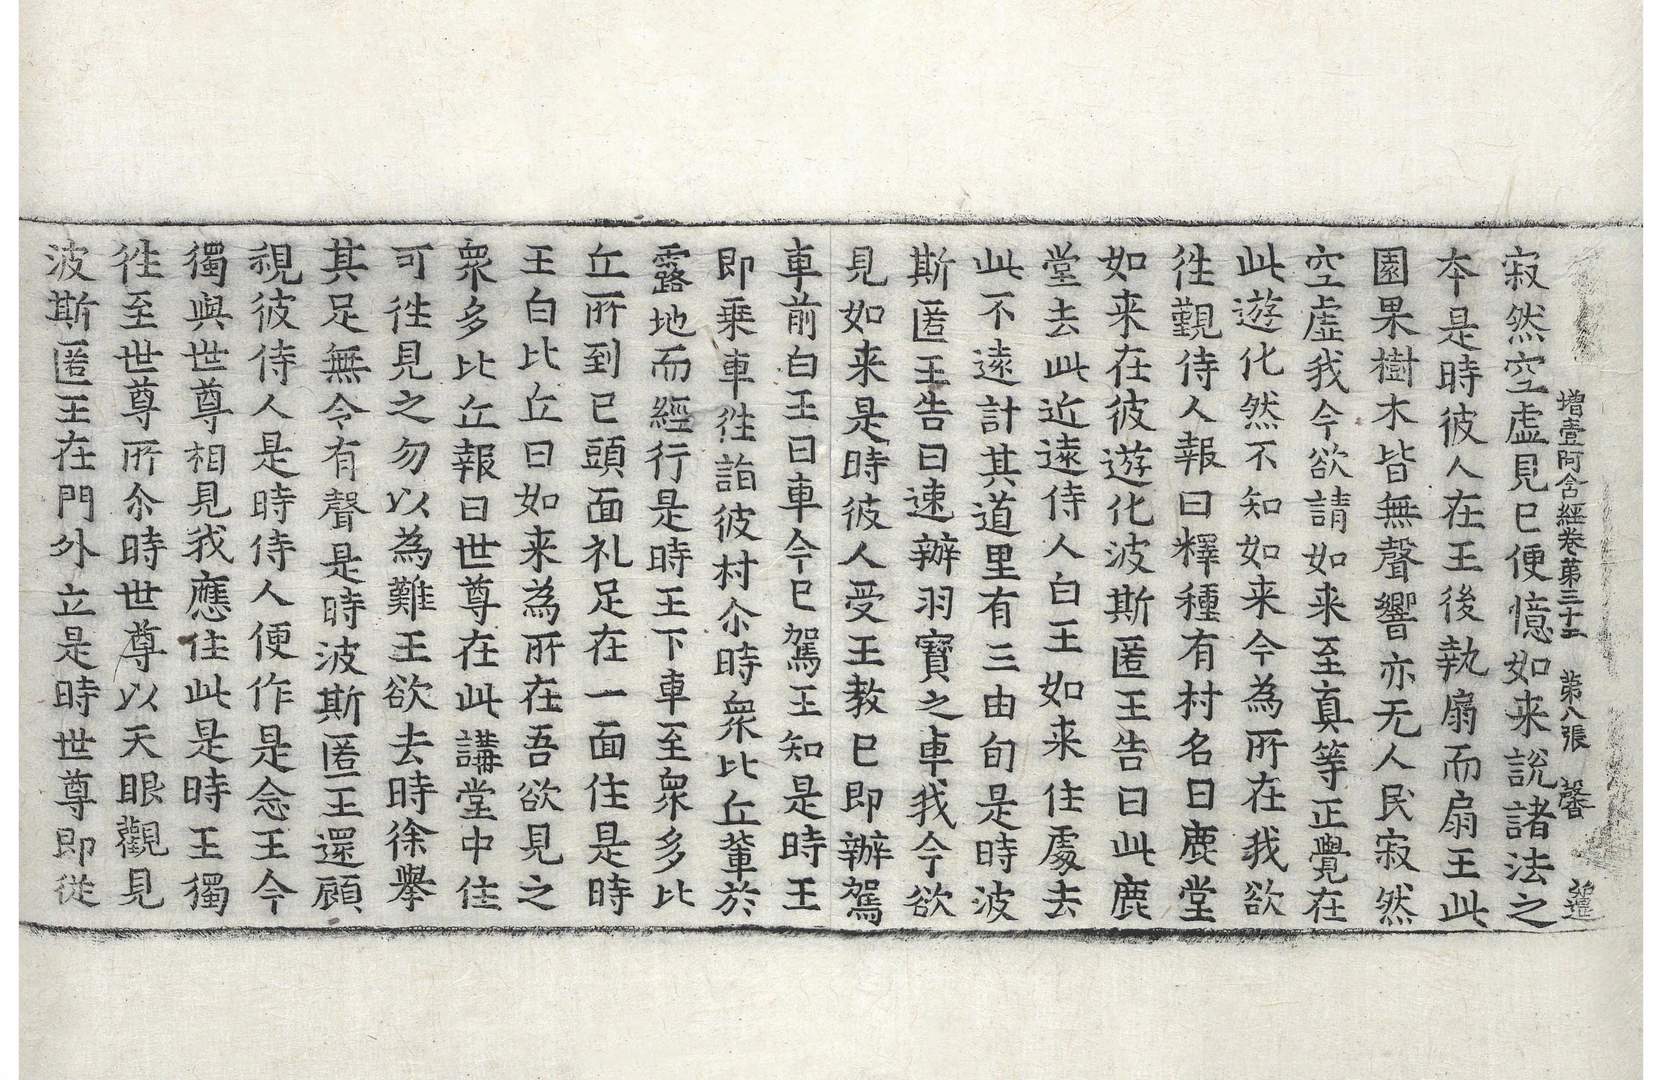 增壹阿含經卷第三十二 第八張 馨
寂然空虛見已便憶如来說諸法之
本是時彼人在王後執扇而扇王此
園果樹木皆無聲響亦无人民寂然
空虛我今欲請如来至真等正覺在
此遊化然不知如来今為所在我欲
往觀侍人報曰釋種有村名曰鹿堂
如来在彼遊化波斯匿王告曰此鹿
堂去此近遠侍人白王如来住處去
此不遠計其道里有三由旬是時波
斯匿王告曰速辦羽寶之車我今欲
見如来是時彼人受王教已即辦駕
車前白王曰車今已駕王知是時王
即乗車往詣彼村尒時衆比丘輩於
露地而經行是時王下車至衆多比
丘所到已頭面礼足在一面住是時
王白比丘曰如来為所在吾欲見之
衆多比丘報曰世尊在此講堂中住
可往見之勿以為難王欲去時徐舉
其足無令有聲是時波斯匿王還顧
視彼侍人是時侍人便作是念王今
獨與世尊相見我應住此是時王獨
往至世尊所尒時世尊以天眼觀見
波斯匿王在門外立是時世尊即從